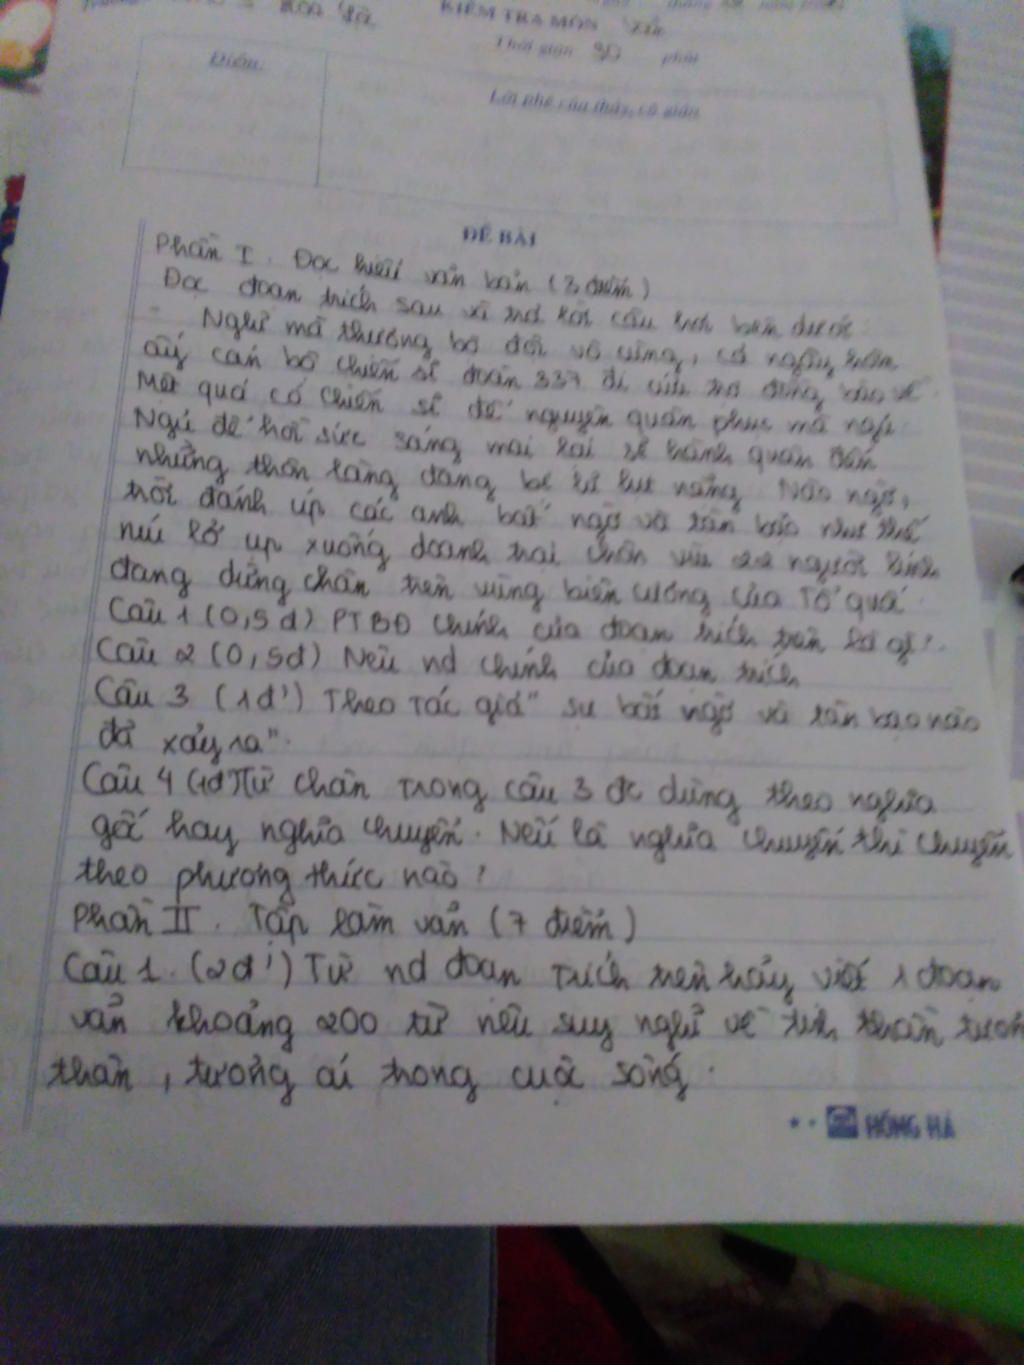 KIỂM TRA MÔN Văn
Thời gian 90 phút
Điểm
Lời phê của thầy, cô giáo
ĐỀ BÀI
Phần I. Đọc hiểu văn bản (3 điểm)
Đọc đoạn trích sau và trả lời câu hỏi bên dưới:
Nghĩ mà thương bộ đội vô cùng, cả ngày hôm
ấy cán bộ chiến sĩ đoàn 337 đi cứu trợ đồng bào về
Mệt quá có chiến sĩ để nguyên quân phục mà ngủ
Ngủ để hồi sức sáng mai lại sẽ hành quân đến
những thôn làng đang bị lũ lụt nặng. Nào ngờ,
trời đánh úp các anh bất ngờ và tàn bạo như thế
núi lở ụp xuống doanh trại chôn vùi 22 người lính
đang dừng chân trên vùng biên cương của Tổ quốc.
Câu 1 (0,5đ) PTBĐ chính của đoạn trích trên là gì?
Câu 2 (0,5đ) Nêu nd chính của đoạn trích
Câu 3 (1đ') Theo Tác giả "sự bất ngờ và tàn bạo nào
đã xảy ra".
Câu 4 (1đ) Từ chân trong câu 3 đc dùng theo nghĩa
gốc hay nghĩa chuyển. Nếu là nghĩa chuyển thì chuyển
theo phương thức nào?
Phần II. Tập làm văn (7 điểm)
Câu 1. (2đ') Từ nd đoạn Trích trên hãy viết 1 đoạn
văn khoảng 200 từ nêu suy nghĩ về tinh thần tương
thân, tương ái trong cuộc sống.
HỒNG HÀ